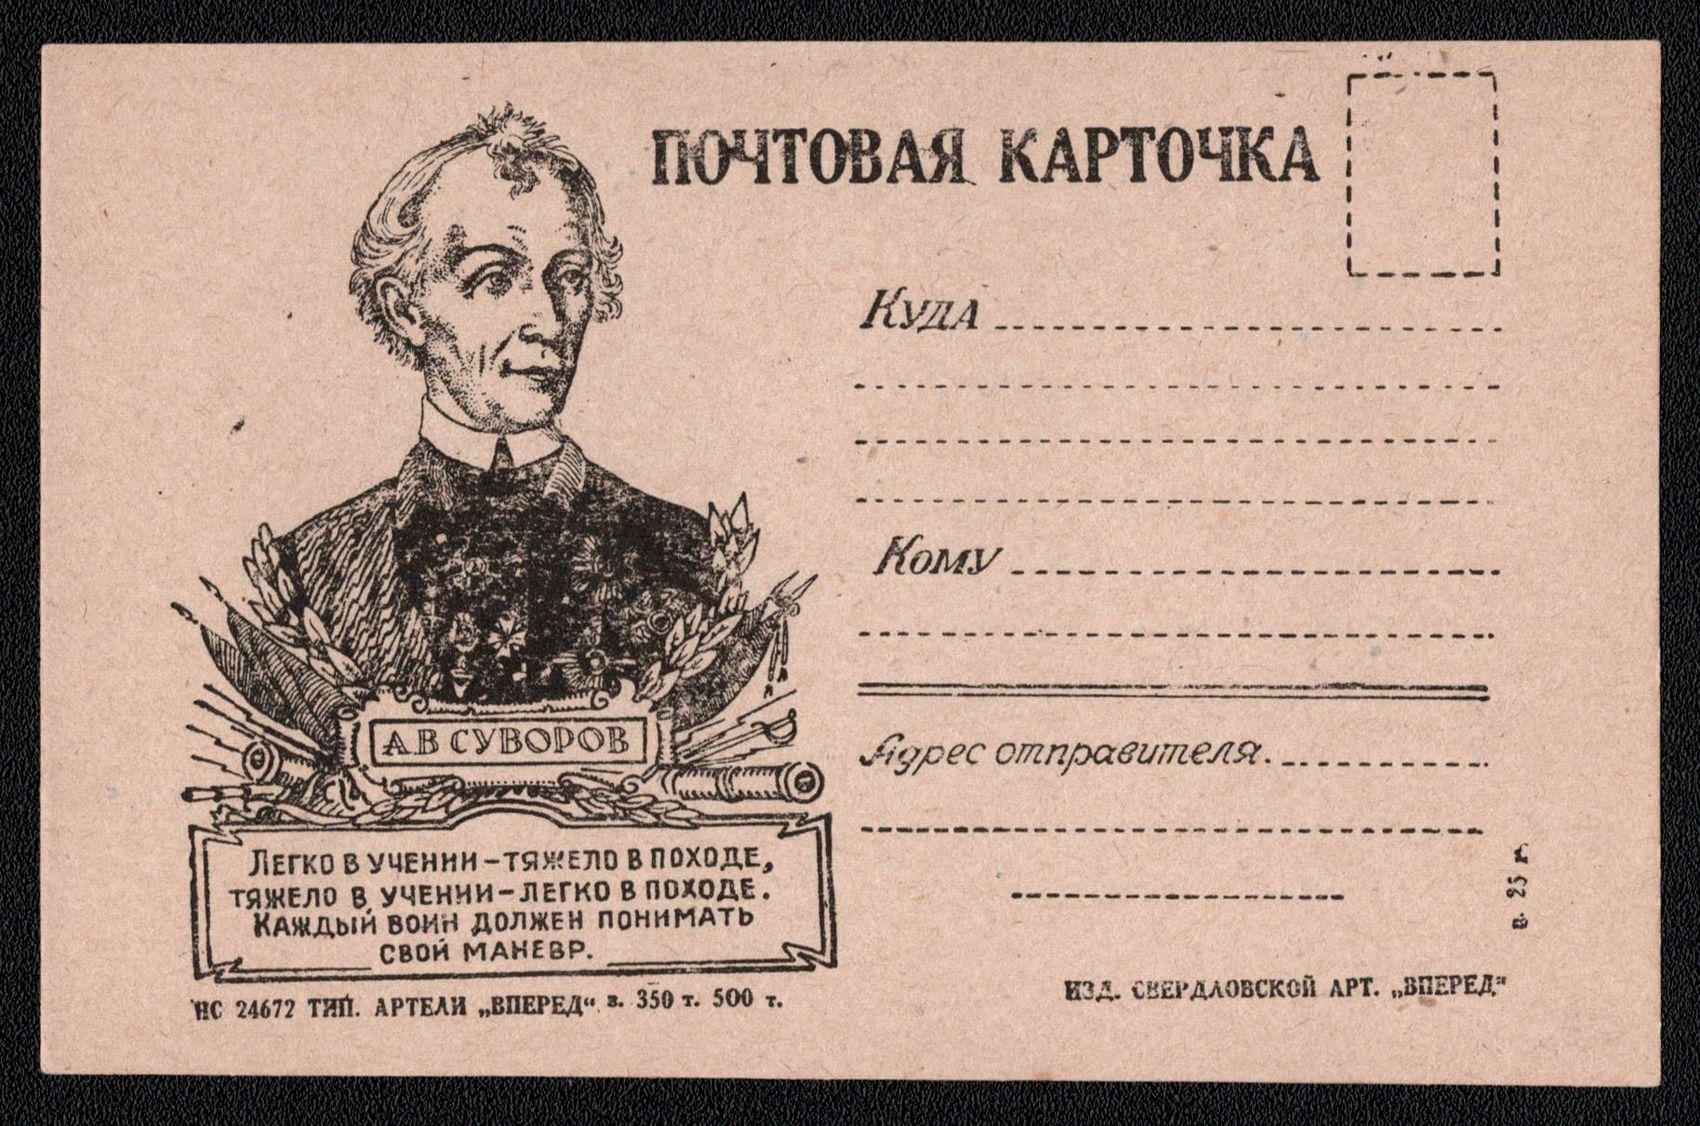 ПОЧТОВАЯ КАРТОЧКА
Куда
Кому
Адрес отправителя.
А.В СУВОРОВ
ЛЕГКО В УЧЕНИИ – ТЯЖЕЛО В ПОХОДЕ,
ТЯЖЕЛО В УЧЕНИИ – ЛЕГКО В ПОХОДЕ.
КАЖДЫЙ ВОИН ДОЛЖЕН ПОНИМАТЬ
СВОЙ МАНЕВР.
НС 24672 ТИП. АРТЕЛИ „ВПЕРЕД“ з. 350 т. 500 т.
ИЗД. СВЕРДЛОВСКОЙ АРТ. „ВПЕРЕД“
25